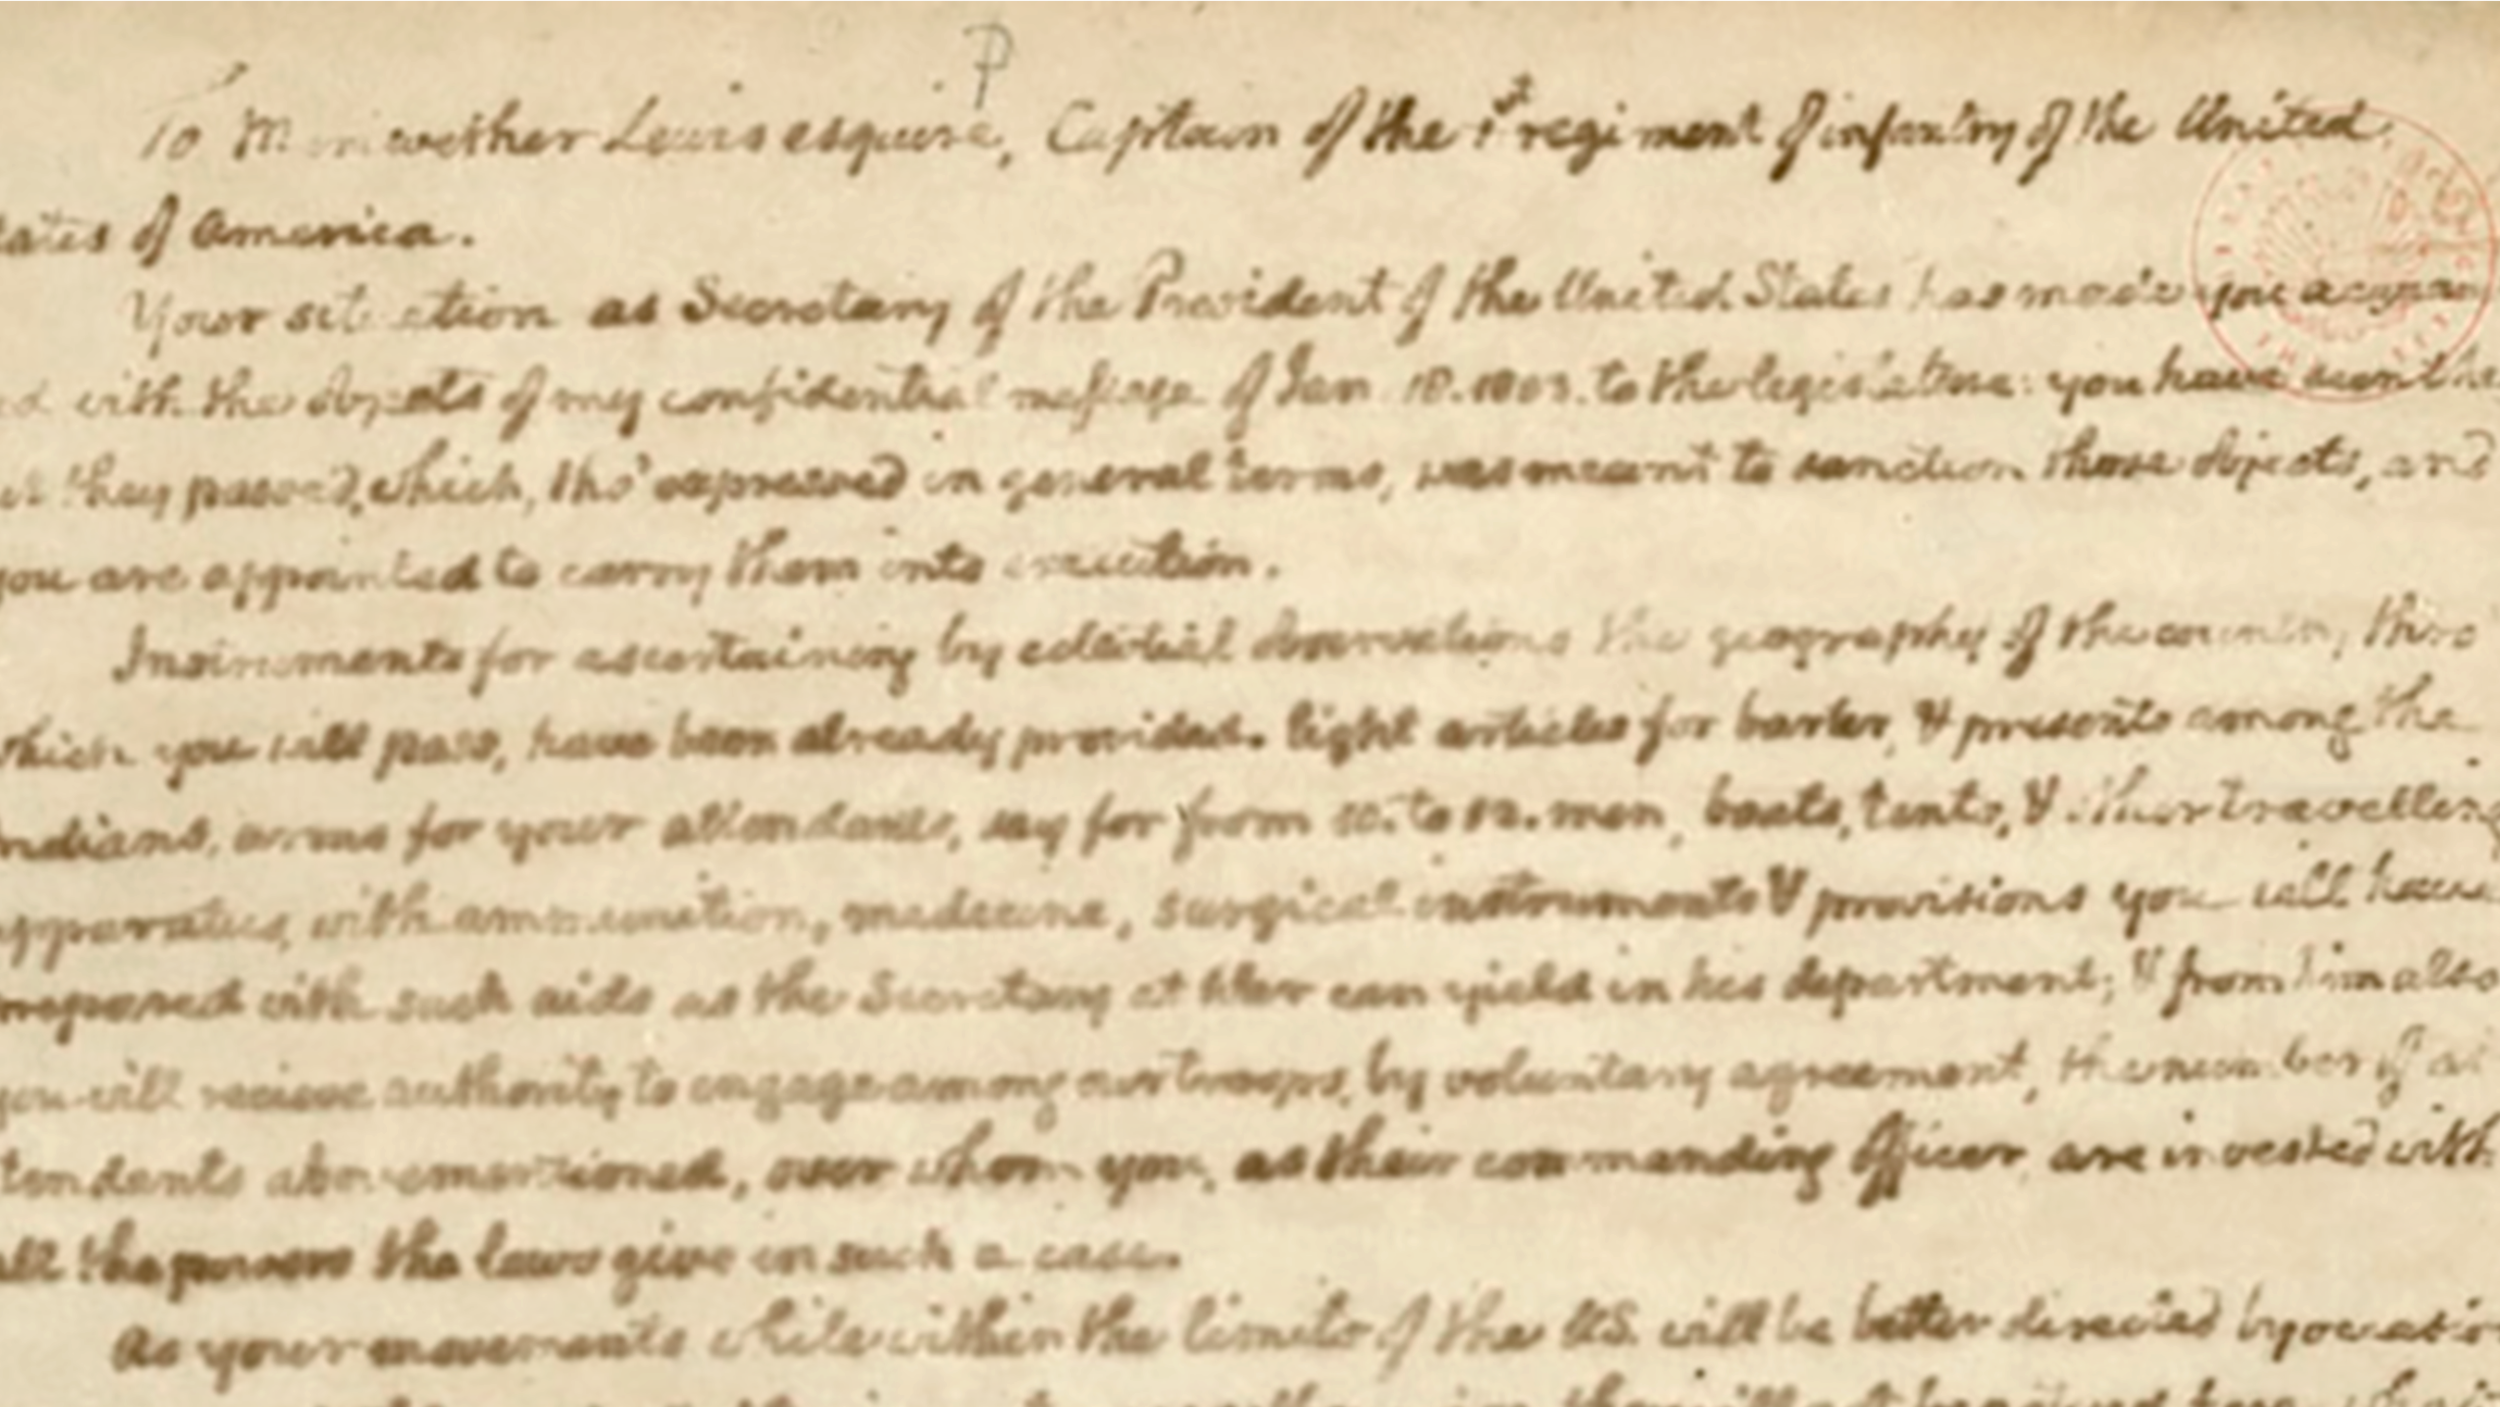 P
To Meriwether Lewis esquire, Captain of the 1st regiment of infantry of the United
tates of America.
Your situation as Secretary of the President of the United States has made you acquain
ed with the objects of my confidential message of Jan. 18. 1803. to the legislature: you have seen the
ct they passed, which, tho' expressed in general terms, was meant to sanction those objects, and
you are appointed to carry them into execution.
Instruments for ascertaining by celestial observations the geography of the country thro
which you will pass, have been already provided. light articles for barter, & presents among the
Indians, arms for your attendants, say for from 10. to 12. men, boats, tents, & other travelling
apparatus, with ammunition, medicine, surgical instruments & provisions you will have
prepared with such aids as the Secretary at War can yield in his department; & from him also
you will recieve authority to engage among our troops, by voluntary agreement, the number of at
tendants abovementioned, over whom you, as their commanding officer, are invested with
all the powers the laws give in such a case.
As your movements while within the limits of the U.S. will be better directed by occasio